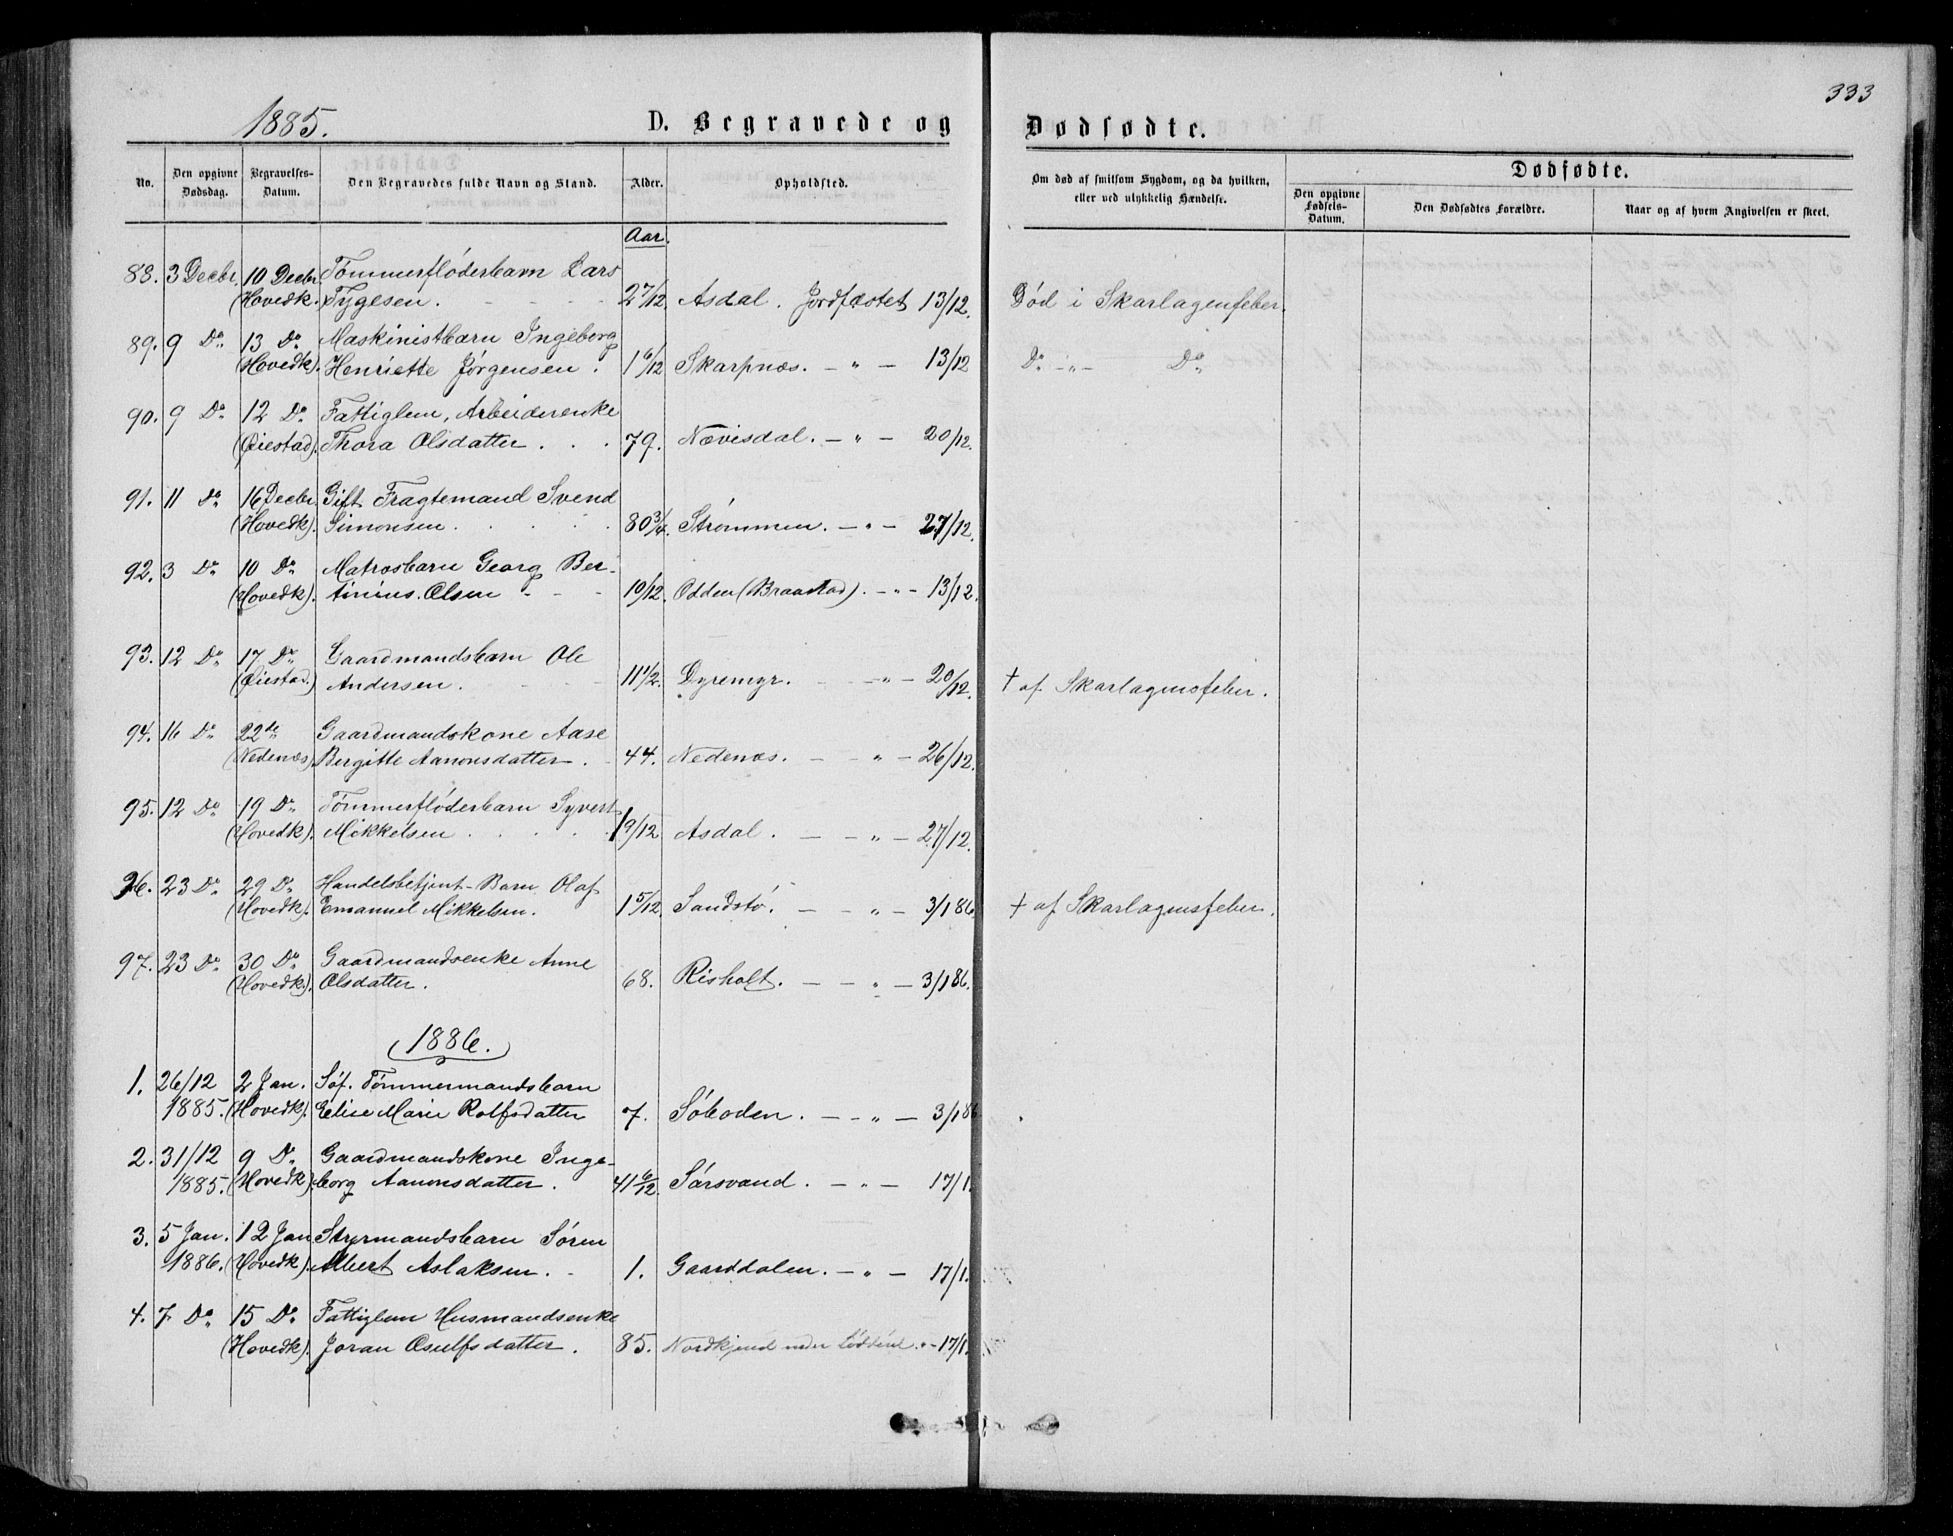 333
1885.
D. Begravede og Dødfødte.
No.
Den opgivne Dødsdag.
Begravelses-Datum.
Den Begravedes fulde Navn og Stand.
Alder.
Opholdssted.
Om død af smitsom Sygdom, og da hvilken, eller ved ulykkelig Hændelse.
Dødfødte.
Den opgivne Fødsels-Datum.
Den Dødfødtes Forældre.
Naar og af hvem Angivelsen er skeet.
Aar.
88. 3 Decbr. 10 Decbr. Tømmerfløderbarn Lars
(Hovedk. Tygesen. 2 7/12. Asdal. Jordfæstet 13/12. Død i Skarlagenfeber.
89. 9 Do. 13 Do. Maskinistbarn Ingeborg
(Hovedk). Henriette Jørgensen. 1 6/12 Skarpnæs. — " — 13/12 Do. — " — Do.
90. 9 Do. 12 Do. Fattiglem, Arbeiderenke
(Øiestad). Thora Olsdatter . . . 79. Nævisdal. — " — 20/12.
91. 11 Do. 16 Decbr. Gift Fragtemand Svend
(Hovedk). Simonsen. . . . 80 3/4. Strømmen. — " — 27/12.
92. 3 Do. 10 Do. Matrosbarn Georg Ber-
(Hovedk). tinius Olsen - - - 10/12. Odden (Braastad). — " — 13/12.
93. 12 Do. 17 Do. Gaardmandsbarn Ole
(Øiestad.) Andersen. 11 1/2. Dyremyr. — " — 20/12. † af Skarlagensfeber.
94. 16 Do. 22de Gaardmandskone Aase
(Nedenæs) Bergitte Aanonsdatter. 44. Nedenæs. — " — 26/12.
95. 12 Do. 19 Do. Tømmerfløderbarn Syvert
(Hovedk). Mikkelsen . . . . . 1 9/12 Asdal. — — " — 27/12.
96. 23 Do. 29 Do. Handelsbetjent-Barn Olaf
(Hovedk). Emanuel Mikkelsen. 1 5/12. Sandstø. — — " — 3/1 86 † af Skarlagensfeber.
97. 23 Do. 30 Do. Gaardmandsenke Anne
(Hovedk). Olsdatter. 68. Risholt. — — " — 3/1 86.
1886.
1. 26/12 2 Jan. Søf. Tømmermandsbarn
1885. (Hovedk). Elise Marie Rolfsdatter 7. Søboden. — — " — 3/1 86
2. 31/12 9 Do. Gaardmandskone Inge-
1885. (Hovedk). borg Aanonsdatter. 41 6/12. Sørsvand. — " — 17/1.
3. 5 Jan. 12 Jan Styrmandsbarn Søren
1886. (Hovedk). Albert Aslaksen. . 1. Gaarddalen. — " — 17/1.
4. 7 Do. 15 Do. Fattiglem Husmandsenke
(Hovedk). Joran Osulfsdatter. 85. - 17/1.